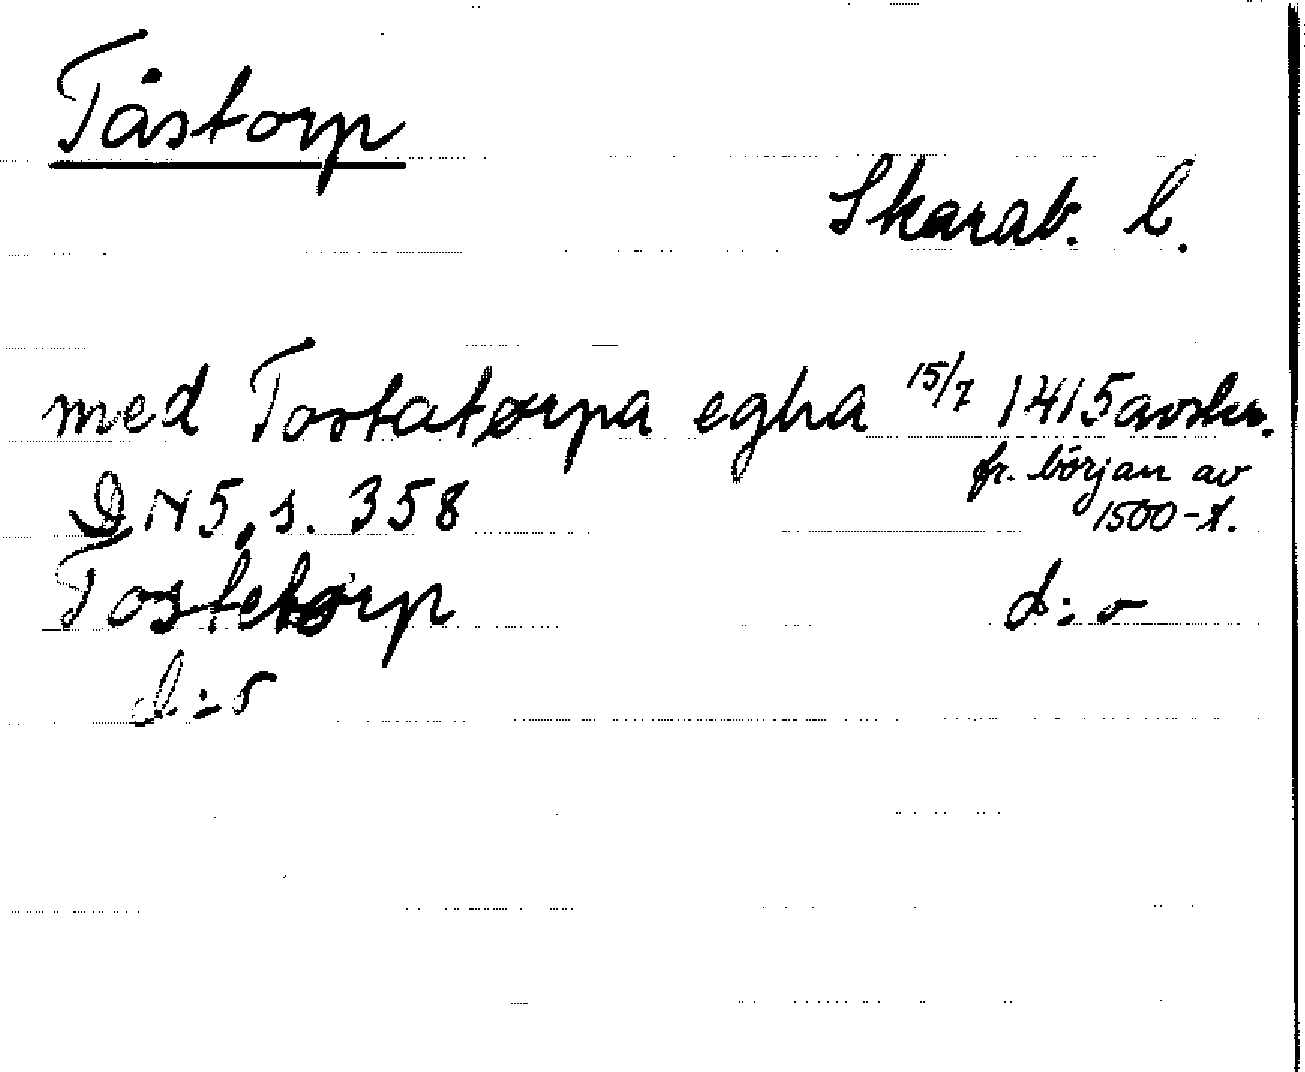 Tåstorp
Skarab. l.
med Tostatorpa egha 15/7 1415 avskr.
fr. början av
1500-t.
DN 5, s. 358
Tostetorp d:o
d:o